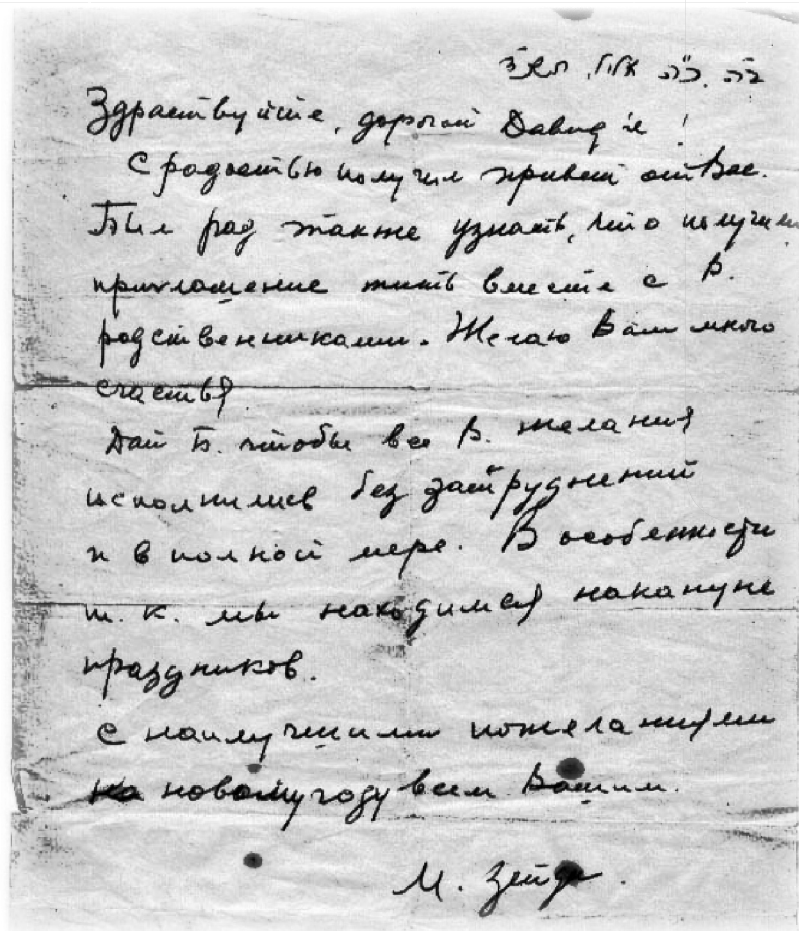 ב"ה. כ"ה אלול,
Здраствуйте, дорогой Давид'е!
С радостью получил привет от Вас.
Был рад также узнать, что получили
приглашение жить вместе с В.
родственниками. Желаю Вам много
счастья
Дай Б. чтобы все В. желания
исполнились без затруднений
и в полной мере. В особенности
т. к. мы находимся накануне
праздников.
С наилучшими пожеланиями
новому году всем Вашим.
М.